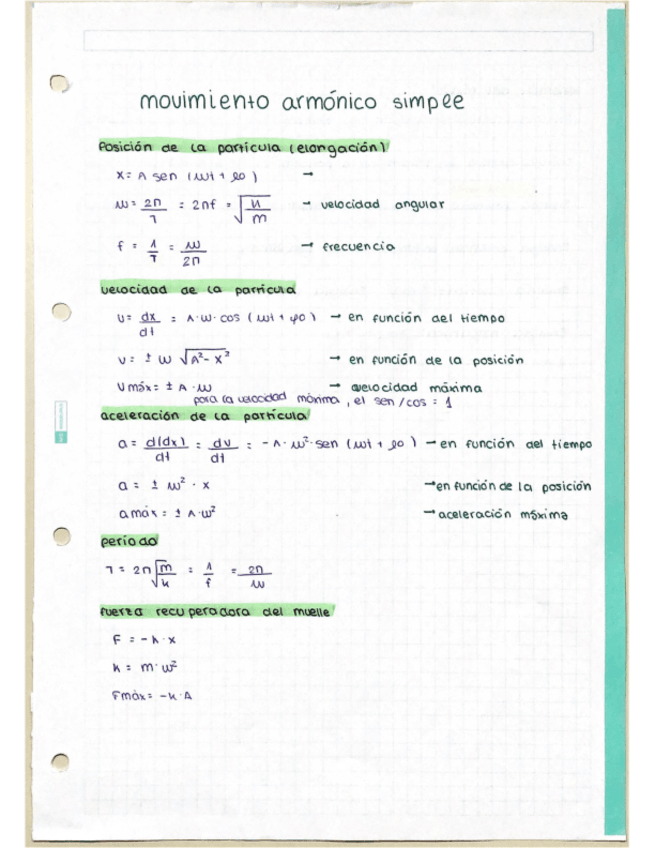 movimiento armónico simple
Posición de la partícula (elongación)
x = A sen (ωt + φo) →
ω = 2π/T = 2πf = √(k/m) → velocidad angular
f = 1/T = ω/2π → frecuencia
velocidad de la partícula
v = dx/dt = A·ω·cos (ωt + φo) → en función del tiempo
v = ± ω √(A² - x²) → en función de la posición
v máx = ± A · ω → velocidad máxima
para la velocidad máxima, el sen/cos = 1
aceleración de la partícula
a = d(dx)/dt = dv/dt = -A·ω²·sen (ωt + φo) → en función del tiempo
a = ± ω² · x → en función de la posición
a máx = ± A·ω² → aceleración máxima
período
T = 2π √(m/k) = 1/f = 2π/ω
fuerza recuperadora del muelle
F = -k·x
k = m·ω²
Fmáx = -k·A